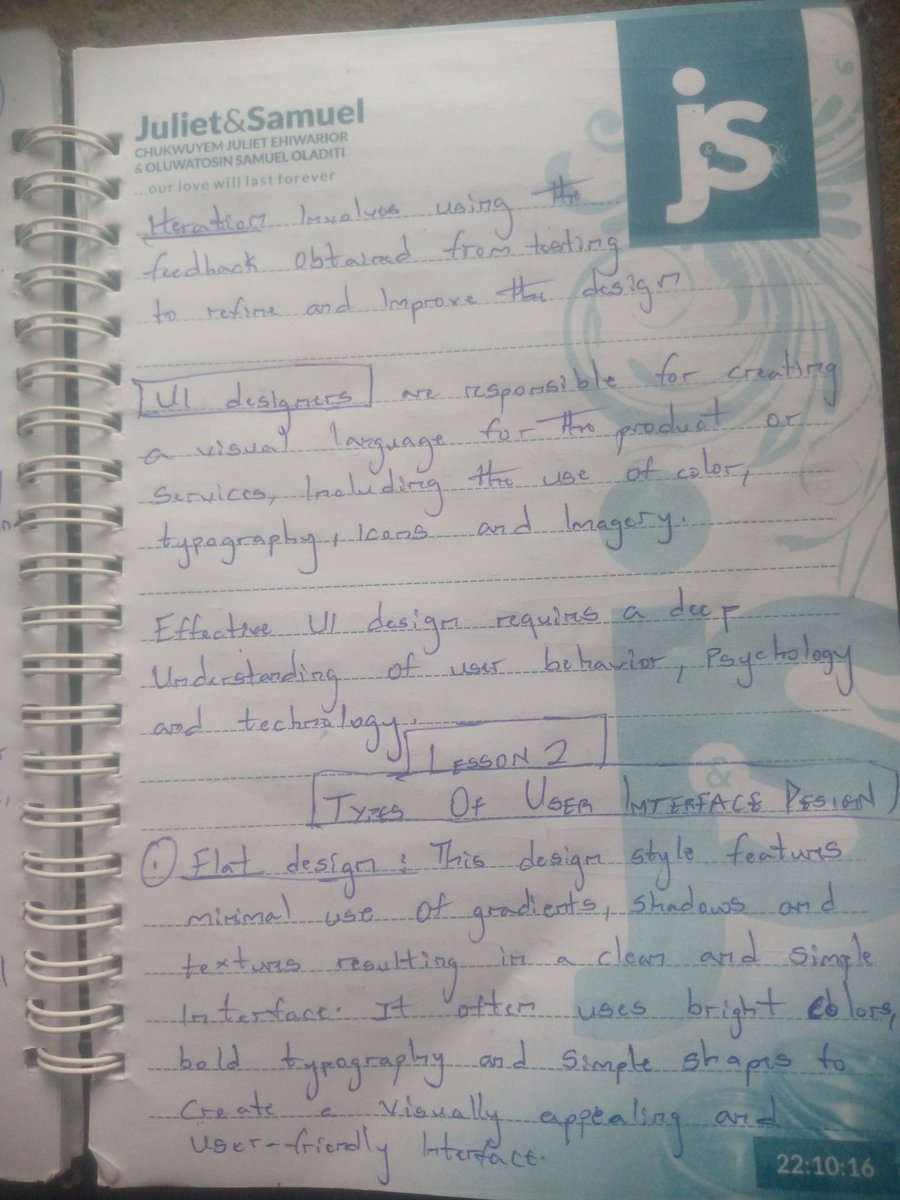 Juliet&Samuel
CHUKWUYEM JULIET EHIWARIOR
& OLUWATOSIN SAMUEL OLADITI
...our love will last forever
j&s
Iteration Involves using the
feedback obtained from testing
to refine and Improve the design
UI designers are responsible for creating
a visual language for the product or
services, Including the use of color,
typography, Icons and Imagery.
Effective UI design requires a deep
Understanding of user behavior, Psychology
and technology.
LESSON 2
TYPES OF USER INTERFACE DESIGN
Flat design: This design style features
minimal use of gradients, shadows and
textures resulting in a clean and simple
Interface. It often uses bright colors,
bold typography and simple shapes to
Create a visually appealing and
User-friendly Interface.
22:10:16